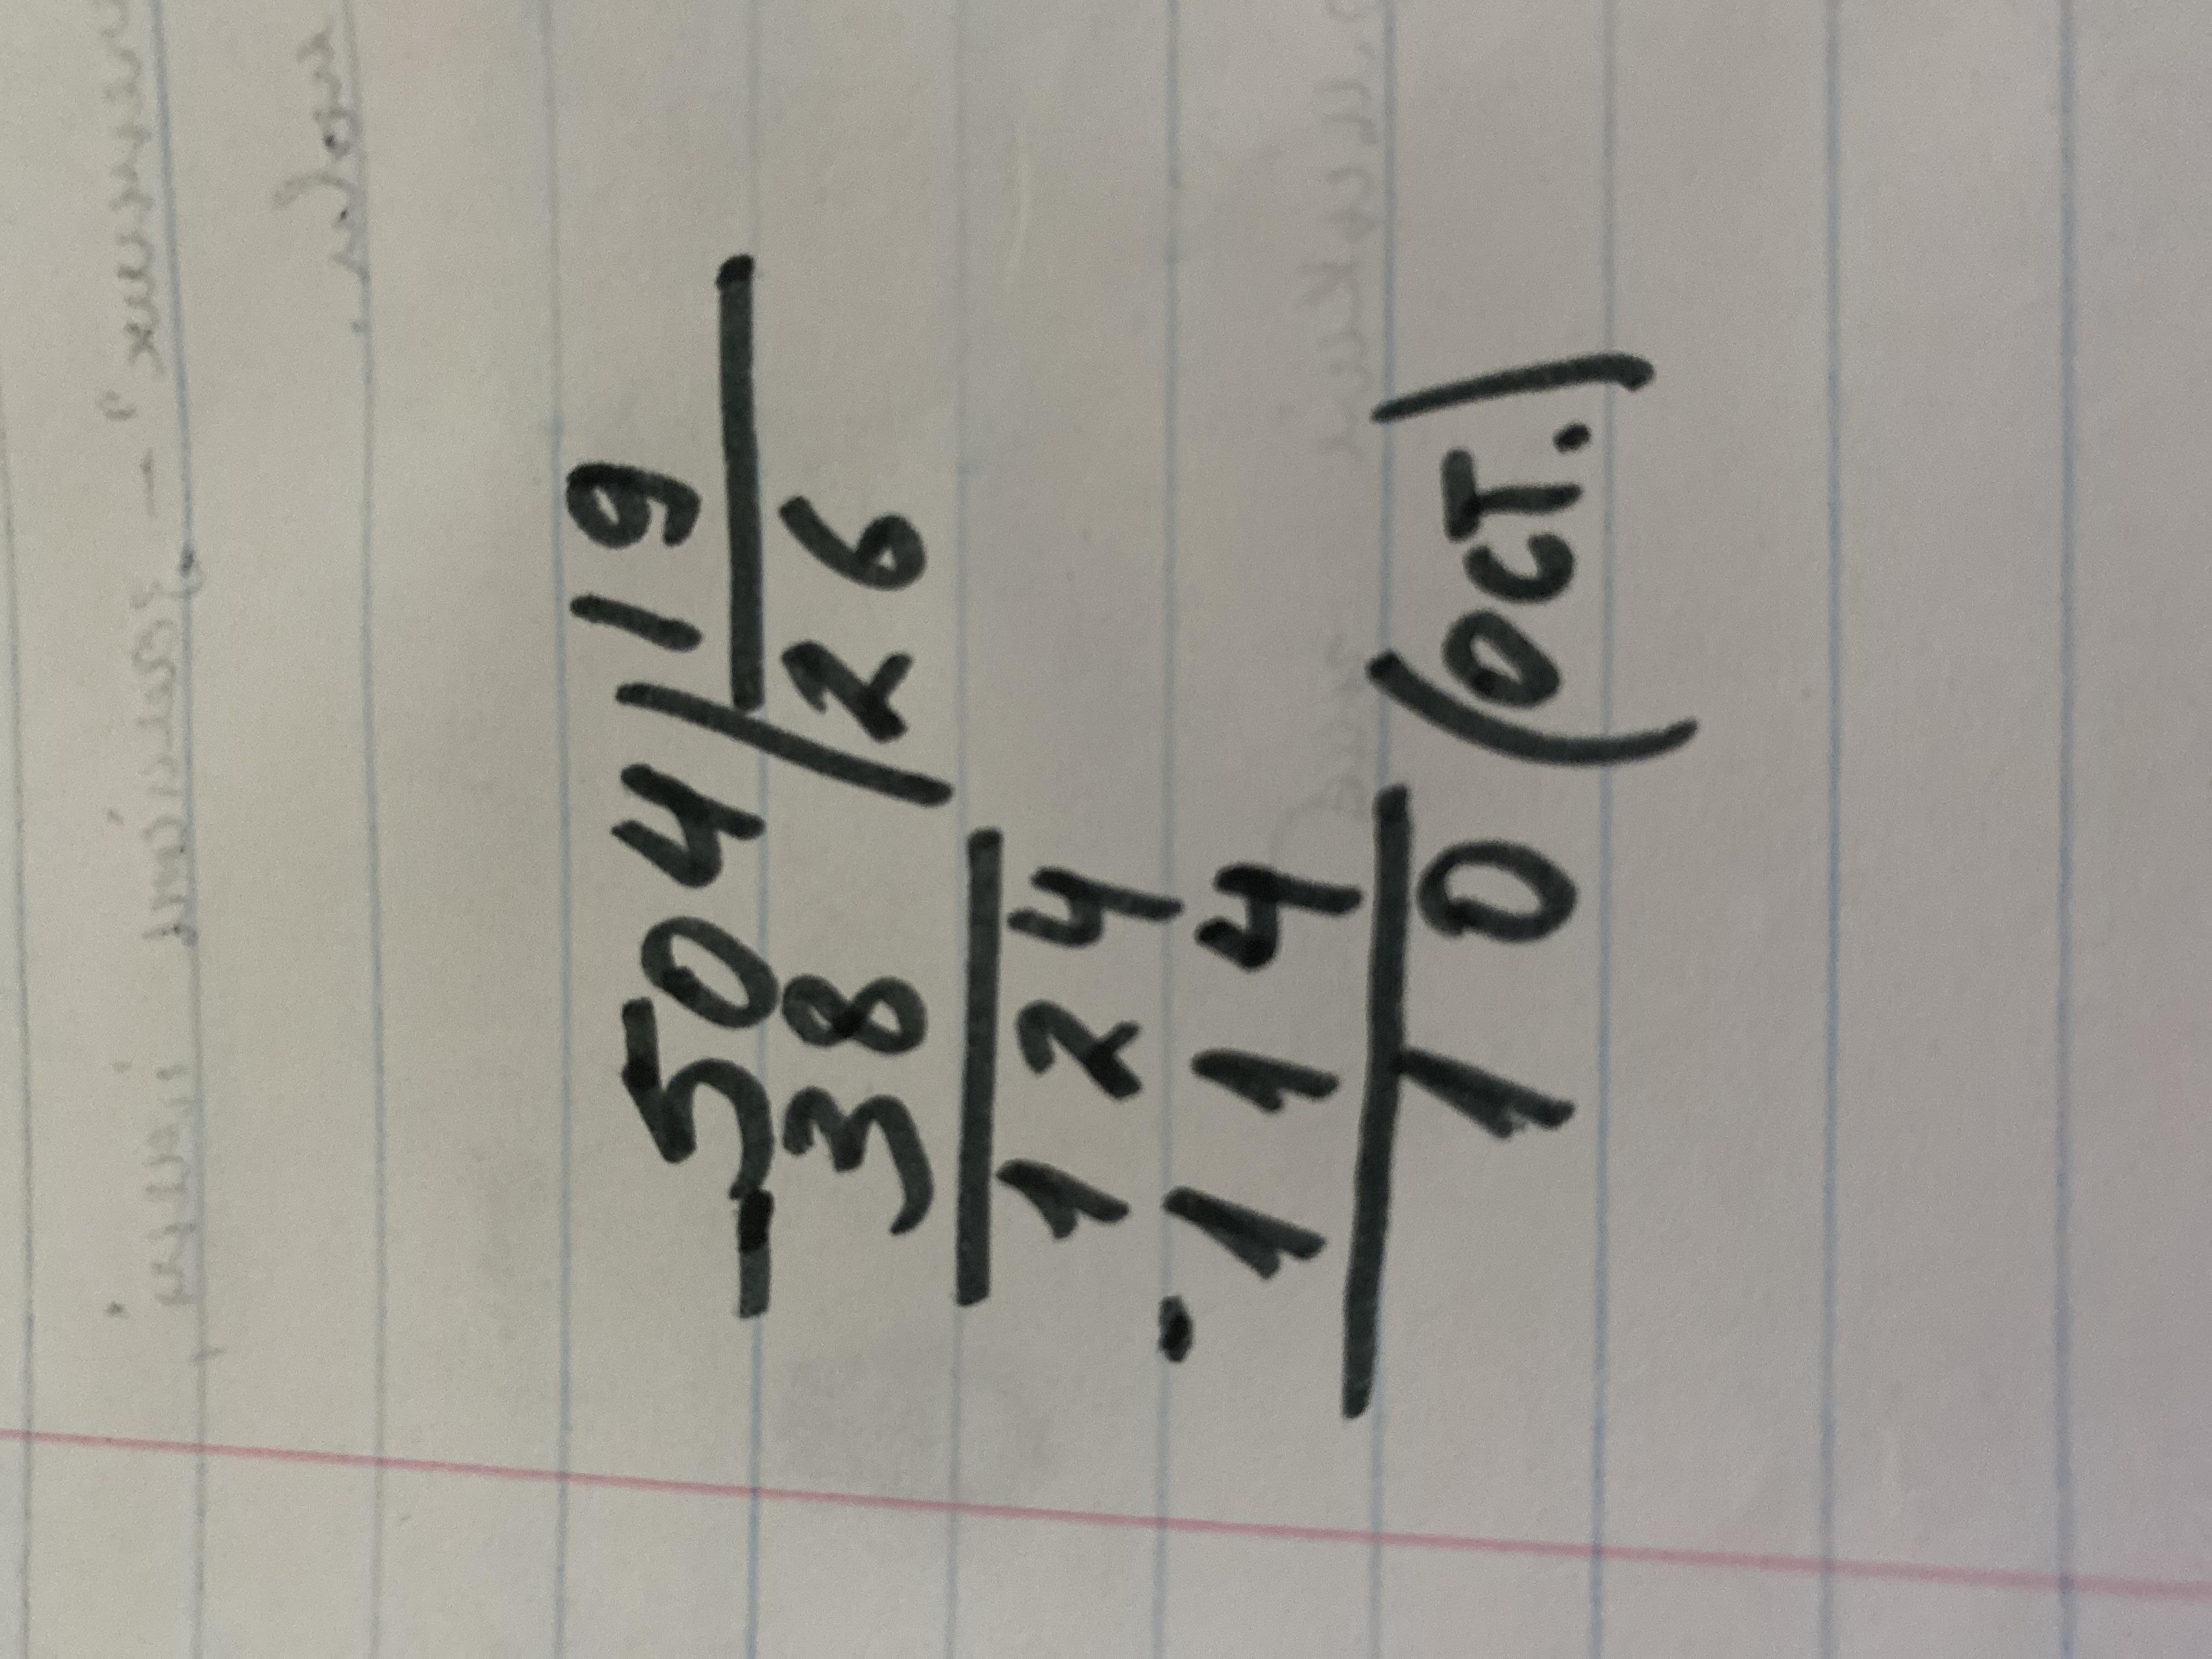 -504/19
38 26
124
-114
10 (ост.)